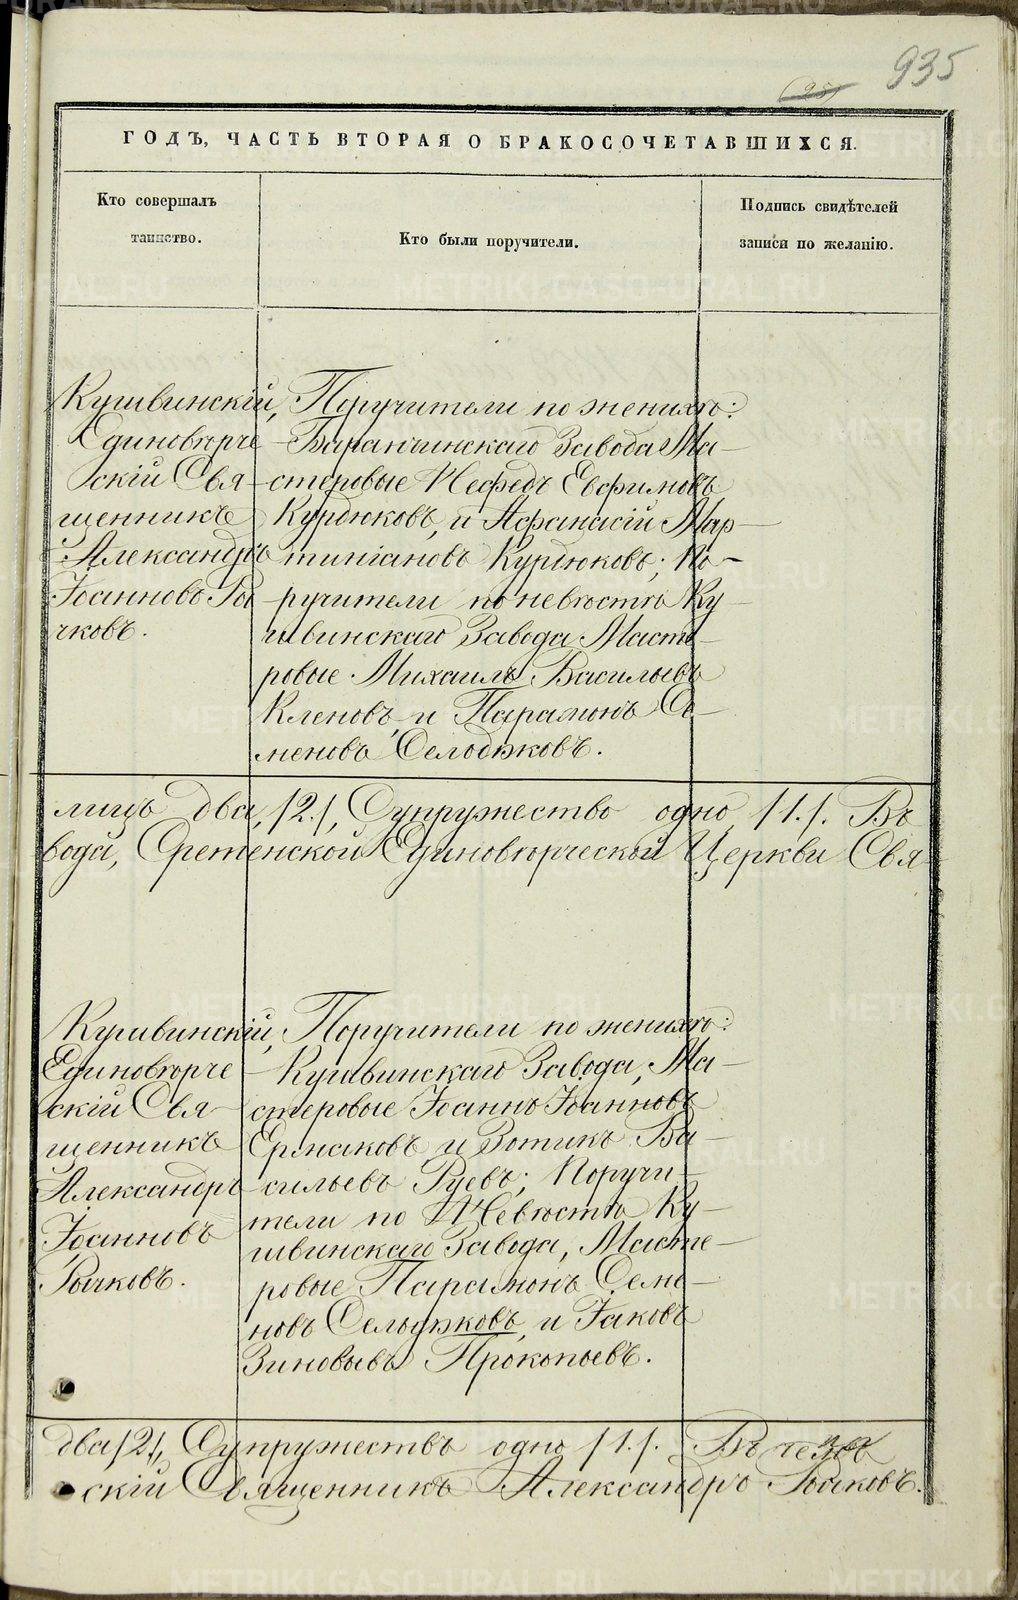 935
(25)
ГОДЪ, ЧАСТЬ ВТОРАЯ О БРАКОСОЧЕТАВШИХСЯ.
Кто совершалъ
таинство.
Кто были поручители.
Подпись свидѣтелей
записи по желанію.
Кушвинскій,
Единовѣрче-
скій Свя-
щенникъ
Александръ
Іоанновъ Ры
чковъ.
Поручители по женихѣ:
Баранчинскаго Завода Ма-
стеровые Нефедъ Евфимовъ
Курдюковъ, и Афанасій Мар-
тиніановъ Курдюковъ; По-
ручители по невѣстѣ Ку-
швинскаго Завода Масте-
ровые Михаилъ Васильевъ
Кленовъ, и Парамонъ Се-
меновъ Селодяковъ.
лицъ два, /2./, Супружество одно, /1./. Въ
вода, Срѣтенской Единовѣрческой Церкви Свя-
Кушвинскій,
Единовѣрче-
скій Свя-
щенникъ
Александръ
Іоанновъ
Рычковъ.
Поручители по женихѣ:
Кушвинскаго Завода, Ма-
стеровые Іоаннъ Іоанновъ
Ермаковъ и Зотикъ Ва-
сильевъ Руевъ; Поручи-
тели по Невѣстѣ Ку-
швинскаго Завода, Масте-
ровые Парамонъ Семе-
новъ Селодяковъ, и Іаковъ
Зиновьевъ Прокопьевъ.
два /2/, Супружествъ одно /1./. Въ
скій Священникъ Александръ Рычковъ.
METRIKI.GASO-URAL.RU